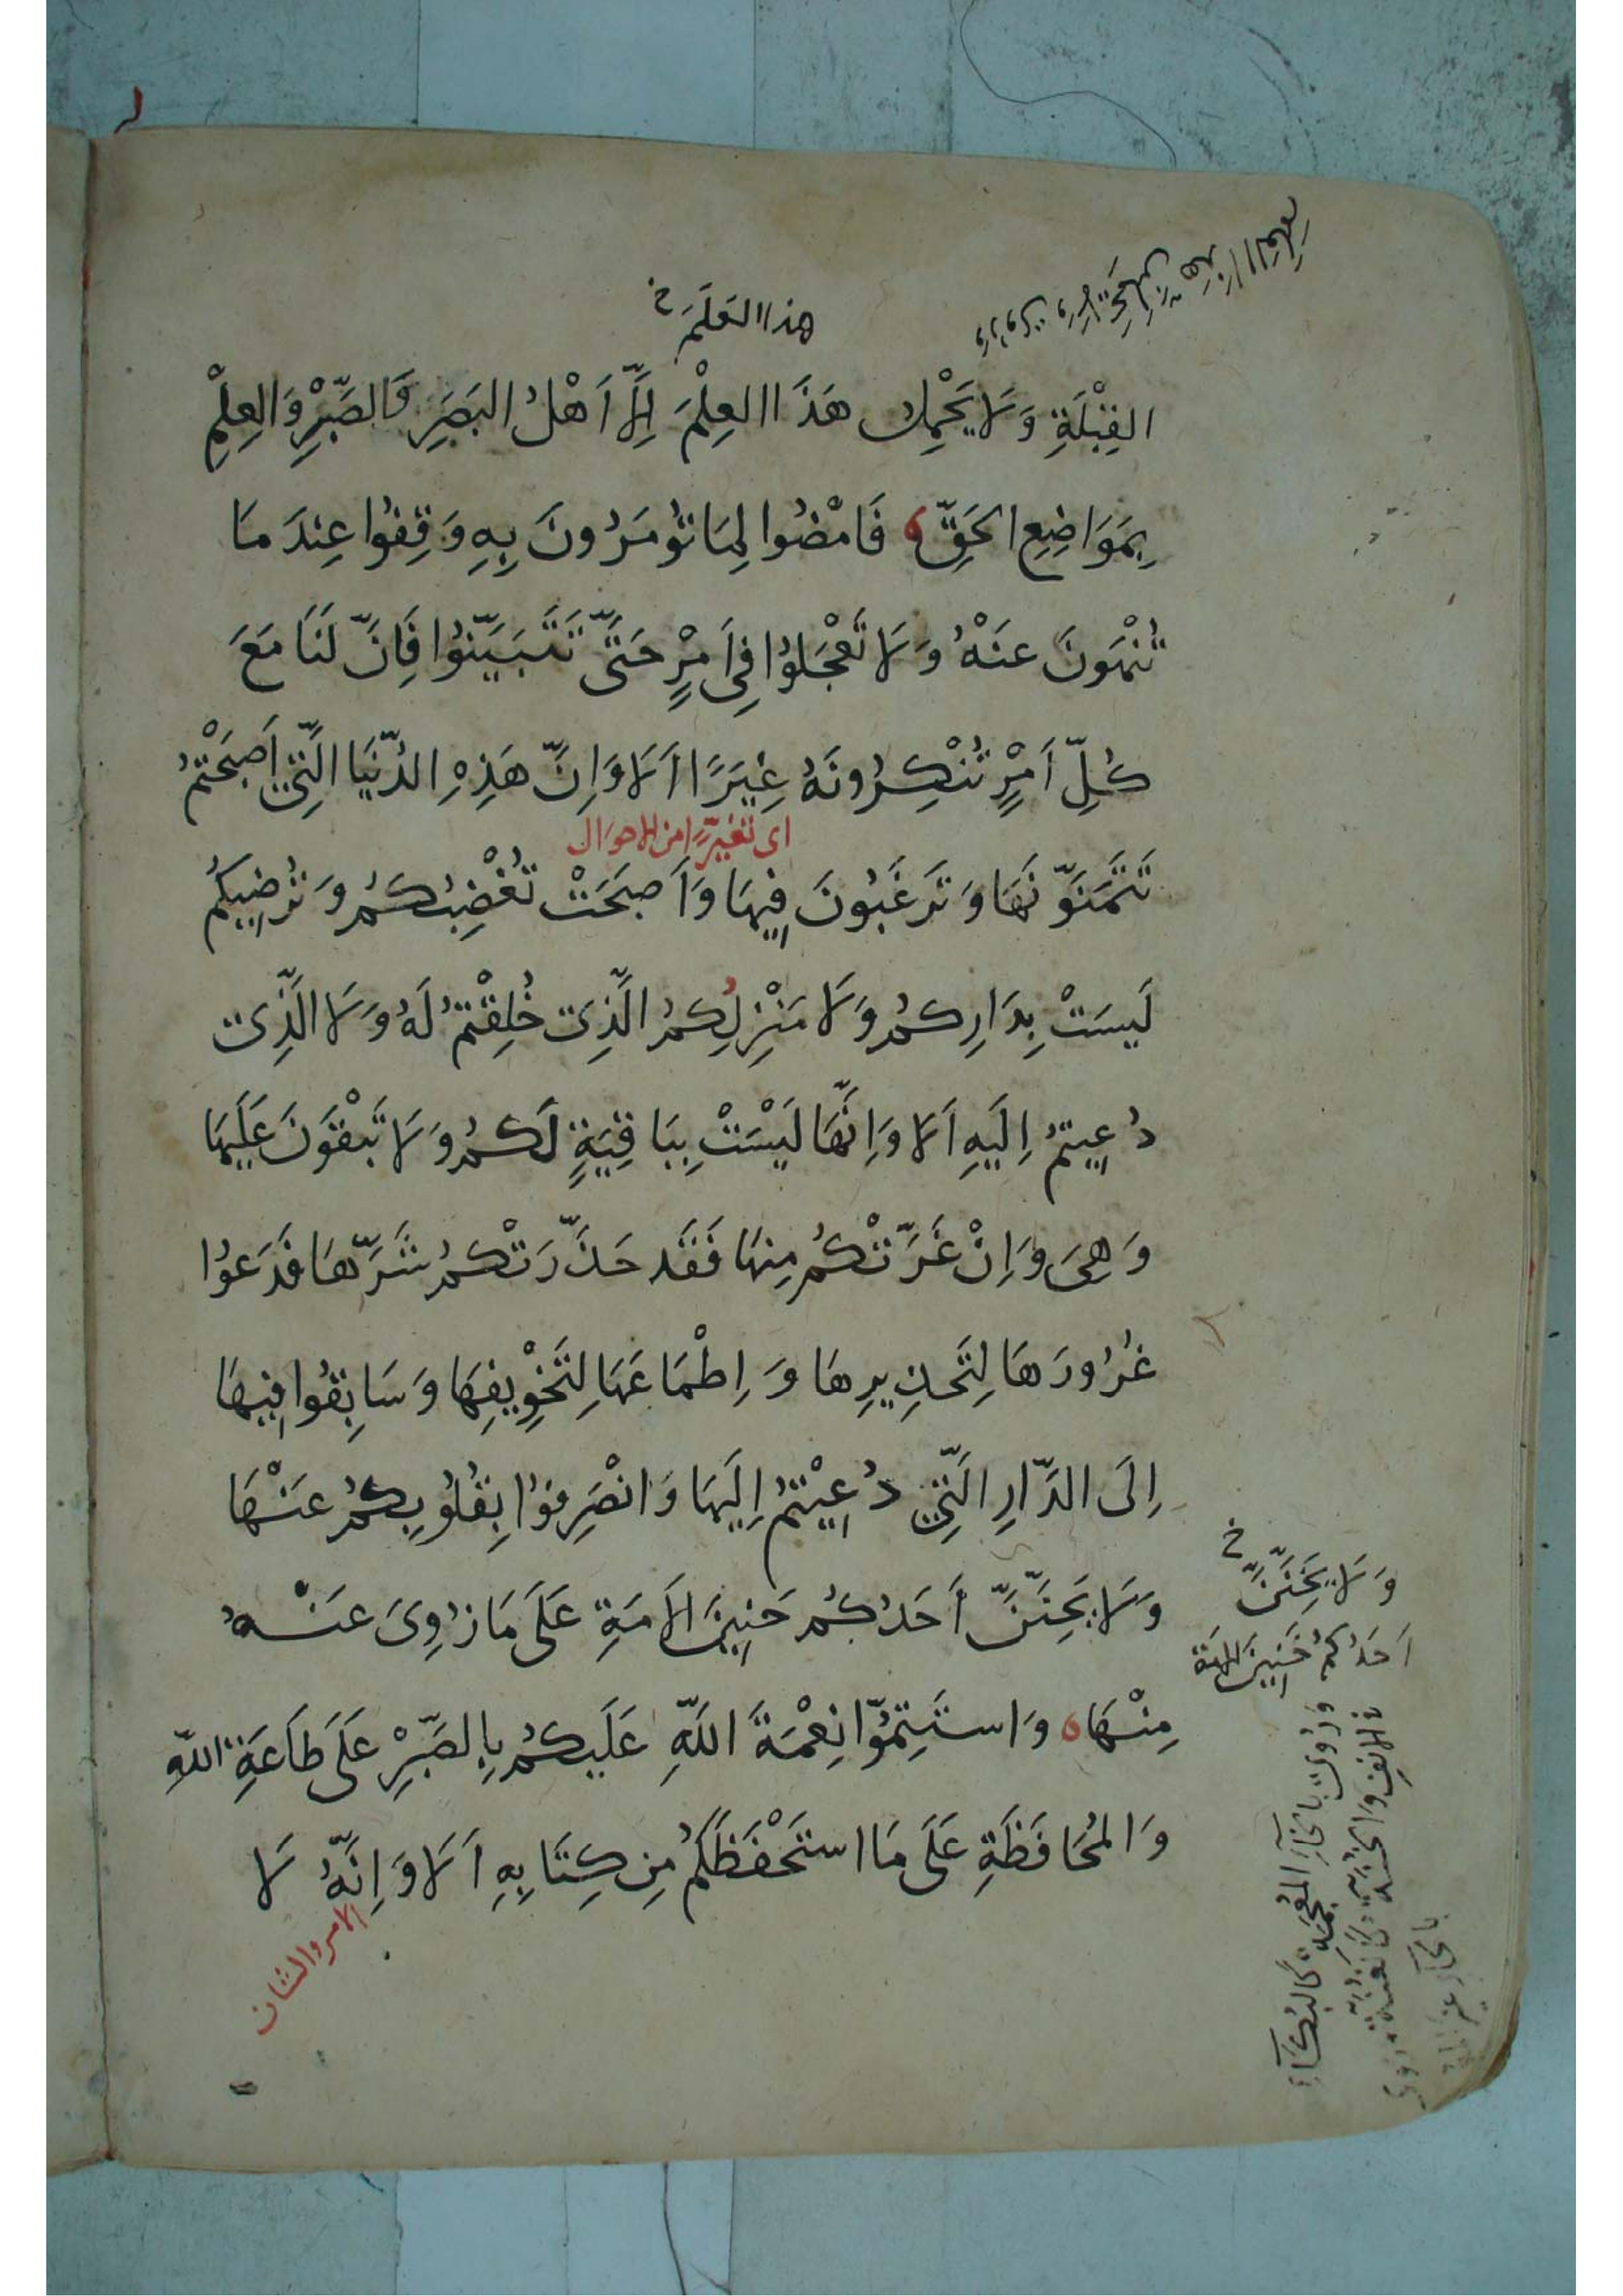 هذا العَلَمَ خ
القِبْلَةِ وَلَا يَحْمِلُ هَذَا العِلْمَ اِلَّا اَهْلُ البَصَرِ وَالصَّبْرِ وَالعِلْمِ
بِمَوَاضِعِ الحَقِّ فَامْضُوا لِمَا تُؤمَرُونَ بِهِ وَقِفُوا عِندَ مَا
تُنْهَونَ عَنْهُ وَلَا تَعْجَلُوا فِي اَمْرٍ حَتَّى تَتَبَيَّنُوا فَاِنَّ لَنَا مَعَ
كُلِّ اَمْرٍ تُنْكِرُونَهُ غِيَرًا اَلَا وَاِنَّ هَذِهِ الدُّنيَا الَّتِي اَصبَحْتُمْ
اى تغيّرًا من الاحوال
تَتَمَنَّونَهَا وَتَرغَبُونَ فِيهَا وَاَصبَحَتْ تُغْضِبُكُمْ وَتُرضِيكُمْ
لَيسَتْ بِدَارِكُمْ وَلَا مَنْزِلِكُمُ الَّذِى خُلِقْتُمْ لَهُ وَلَا الَّذِى
دُعِيتُمْ اِلَيهِ اَلَا وَاِنَّهَا لَيْسَتْ بِبَاقِيَةٍ لَكُمْ وَلَا تَبْقَونَ عَلَيهَا
وَهِىَ وَاِنْ غَرَّتْكُمْ مِنهَا فَقَد حَذَّرَتْكُمْ شَرَّهَا فَدَعُوا
غُرُورَهَا لِتَحذِيرِهَا وَاِطْمَاعَهَا لِتَخْوِيفِهَا وَسَابِقُوا فِيهَا
اِلَى الدَّارِ الَّتِي دُعِيْتُمْ اِلَيهَا وَانْصَرِفُوا بِقُلُوبِكُمْ عَنْهَا
وَلَا يَحِنَّنَّ اَحَدُكُمْ حَنِينَ الاَمَةِ عَلَى مَا زُوِىَ عَنْهُ
مِنْهَا وَاستَتِمُّوا نِعْمَةَ اللّهِ عَلَيكُمْ بِالصَّبْرِ عَلَى طَاعَةِ اللّهِ
وَالمُحَافَظَةِ عَلَى مَا استَحْفَظَكُمْ مِن كِتَابِهِ اَلَا وَاِنَّهُ لَا
الامر والشان
وَلَا يَخِنَّنَّ خ
اَحَدُكُمْ خَنِينَ الاَمَةِ
وَرُوِىَ بِالخَاءِ المُعْجَمَةِ كَالبُكَاءِ
فى الانفِ